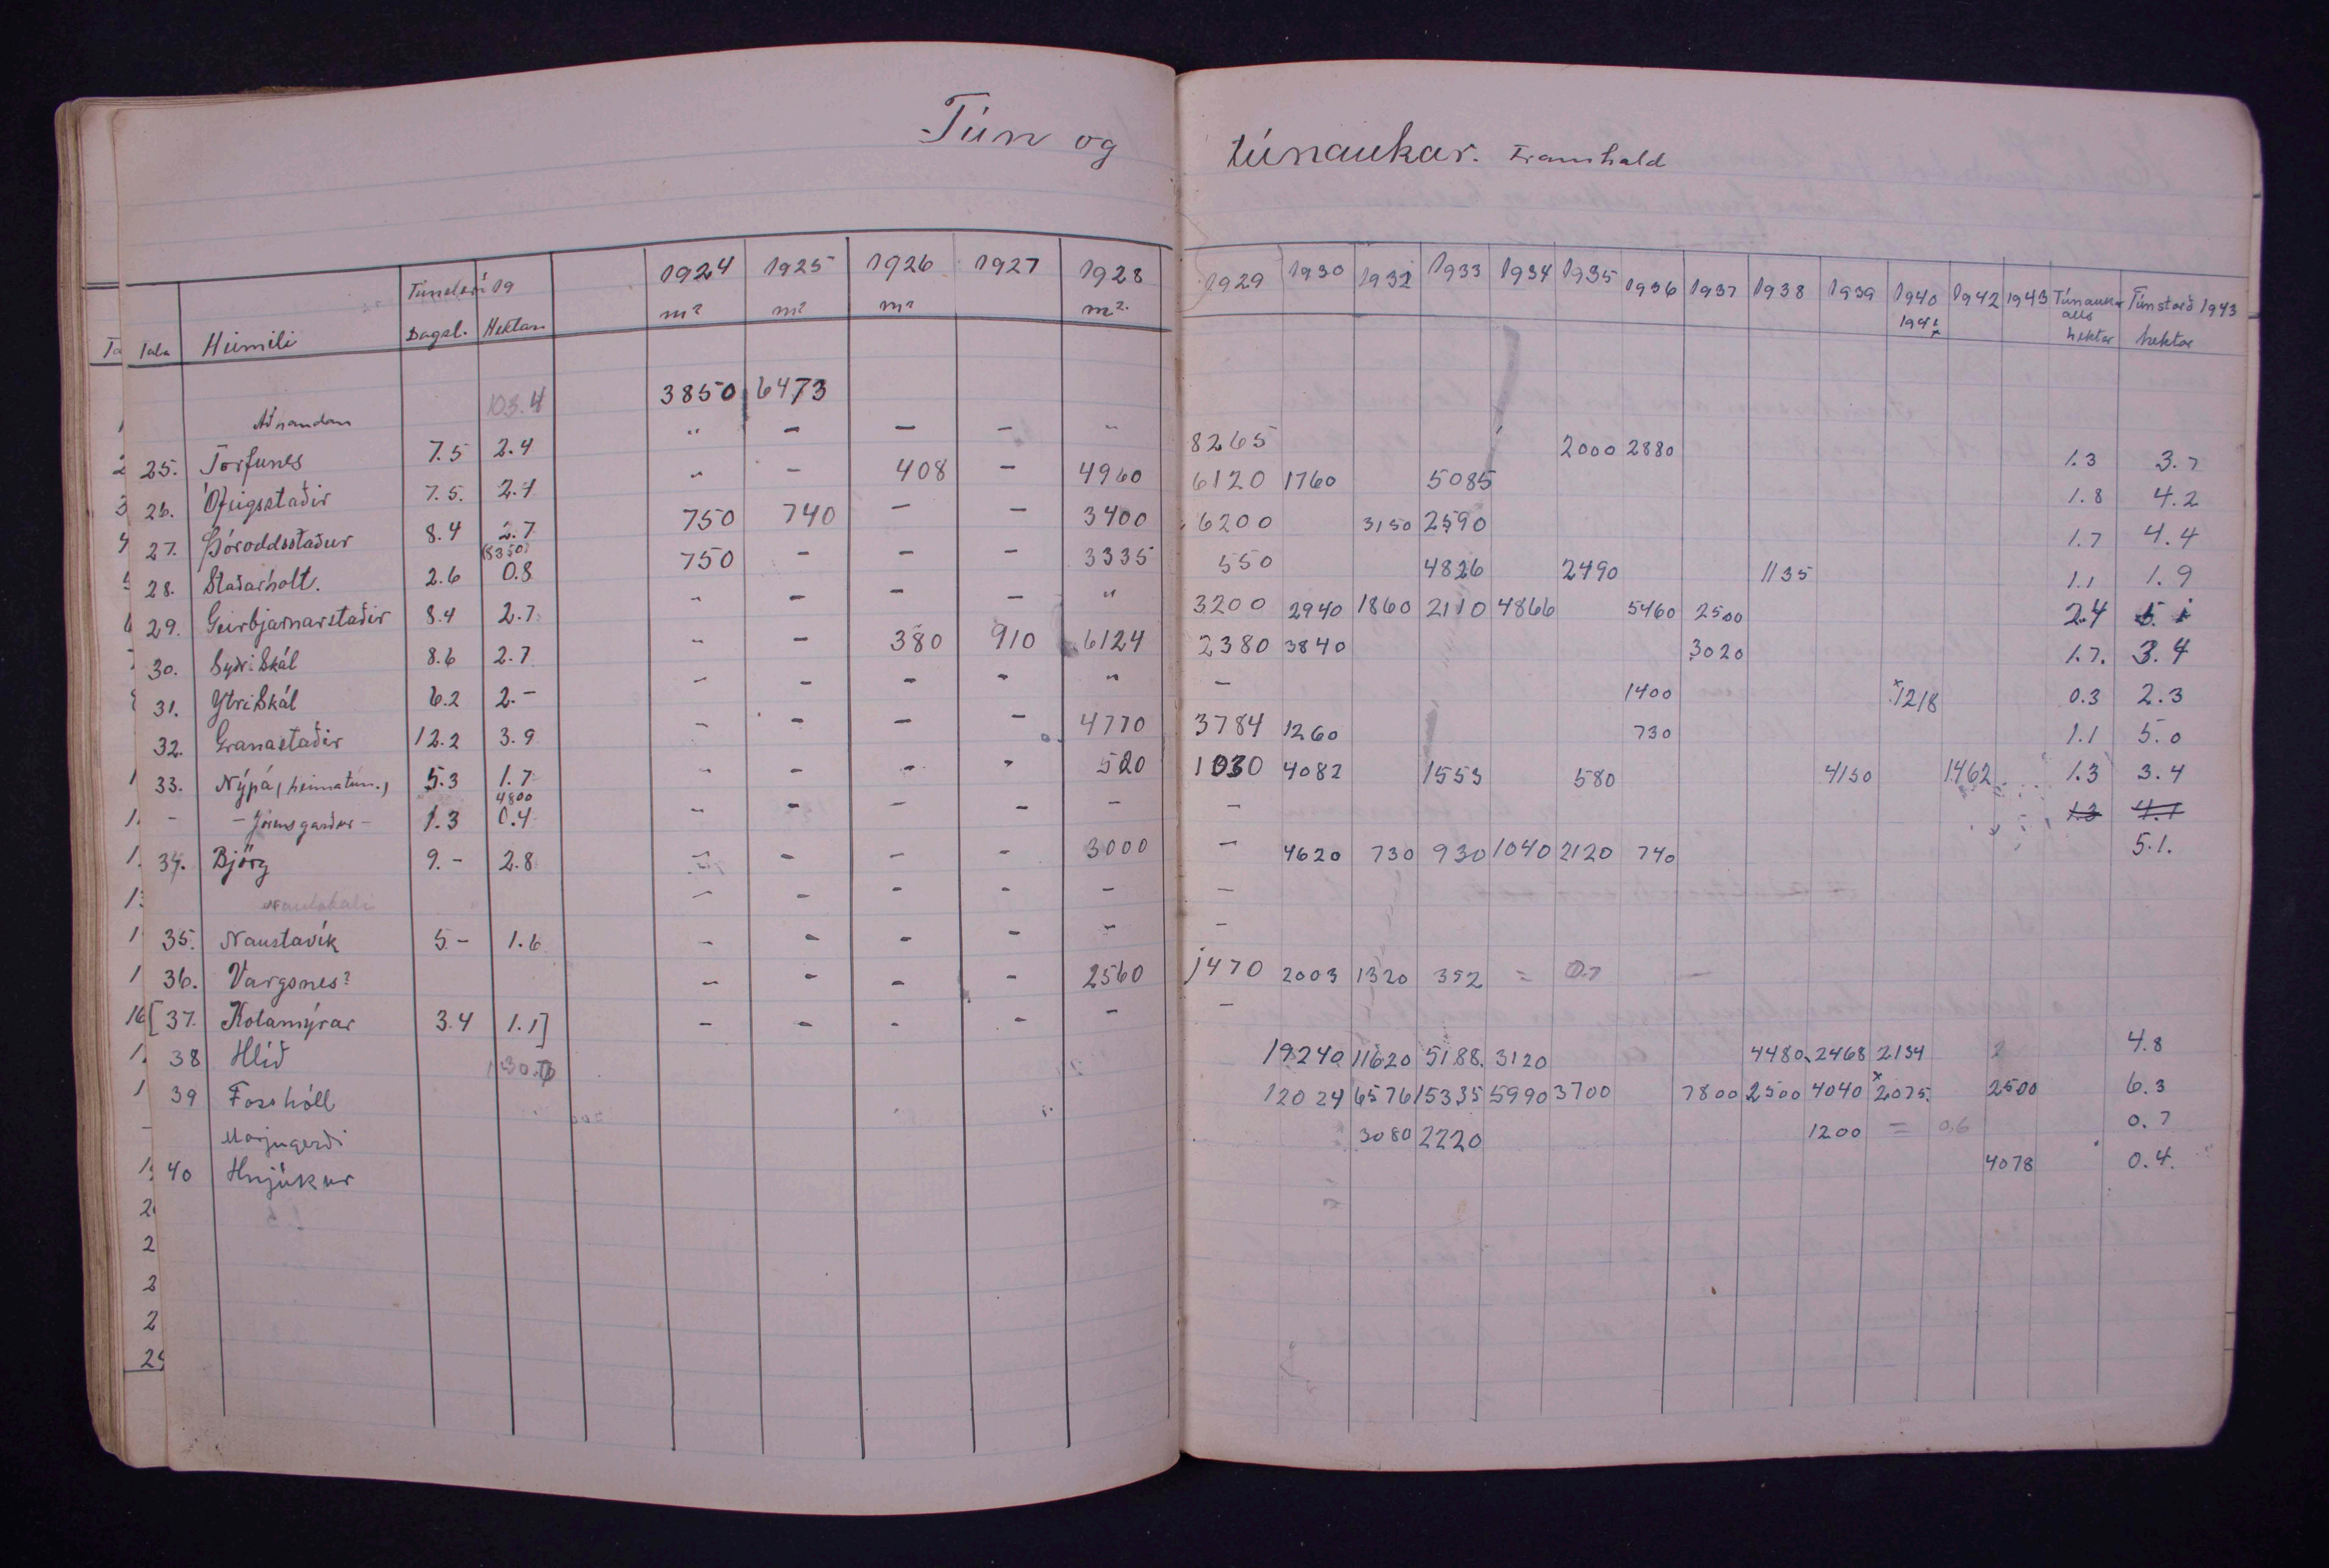 Tún og túnaukar. Framhald
Tala Heimili Dagsl. Hektar 1924 m² 1925 m² 1926 m² 1927 1928 m² 1929 1930 1932 1933 1934 1935 1936 1937 1938 1939 1940 1942 1943 Túnaukar alls hektar Túnstærð 1943 hektar
103.4 3850 6473
25. Torfunes 7.5 2.4 " - - - " 8265 2000 2880 1.3 3.7
26. Ófeigsstaðir 7.5. 2.4 " - 408 - 4960 6120 1760 5085 1.8 4.2
27. Þóroddsstaður 8.4 2.7 750 740 - - 3400 6200 3150 2590 1.7 4.4
(8350)
28. Staðarholt. 2.6 0.8 750 - - - 3335 550 4826 2490 1135 1.1 1.9
29. Geirbjarnarstaðir 8.4 2.7 " - - - " 3200 2940 1860 2110 4866 5460 2500 2.4 5.1
30. Syðri Skál 8.6 2.7 " - 380 910 6124 2380 3840 3020 1.7. 3.4
31. Ytri Skál 6.2 2.- - - - - " - 1400 x1218 0.3 2.3
32. Granastaðir 12.2 3.9 - - - - 4770 3784 1260 730 1.1 5.0
33. Nýpá (heimatún.) 5.3 1.7 - - - - 520 1030 4082 1553 580 4130 1462 1.3 3.4
4800
- 1.3 0.4 - - - - - - 1.3 4.1
34. Björg 9.- 2.8 - - - - 3000 - 4620 730 930 1040 2120 740 5.1.
- - - - - -
35. Naustavík 5- 1.6 - - - - - -
36. Vargsnes? - - - - 2560 1470 2003 1320 352 = 0.7
[37. Kotamýrar 3.4 1.1] - - - - - -
38 Hlíð 19240 11620 5188. 3120 4480 2468 2134 4.8
39 Fosshóll 12024 6576 15335 5990 3700 7800 2500 4040 x2075. 2500 6.3
3080 2220 1200 = 0.6 0.7
40 Hnjúkur 4078 0.4.